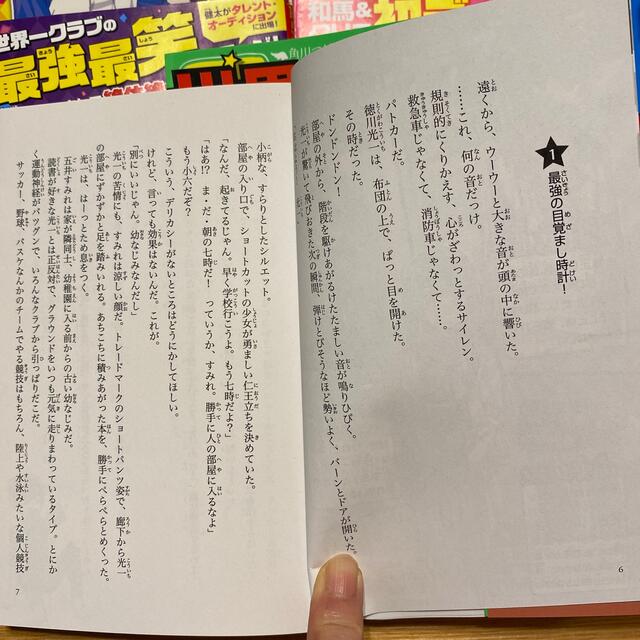 世界一クラブの
最強最笑
健太がタレント・
オーディション
に出場!
和馬&
角川つ
1 最強の目覚まし時計!
遠くから、ウーウーと大きな音が頭の中に響いた。
……これ、何の音だっけ。
規則的にくりかえす、心がざわっとするサイレン。
救急車じゃなくて、消防車じゃなくて……。
パトカーだ。
徳川光一は、布団の上で、ぱっと目を開けた。
その時だった。
ドンドンドン!
部屋の外から、階段を駆けあがるけたたましい音が鳴りひびく。
光一が驚いて飛びおきた次の瞬間、弾けとびそうなほど勢いよく、バーンとドアが開いた。
6
小柄な、すらりとしたシルエット。
部屋の入り口で、ショートカットの少女が勇ましい仁王立ちを決めていた。
「なんだ、起きてるじゃん。早く学校行こうよ。もう七時だよ?」
「はあ!? ま・だ・朝の七時だ! っていうか、すみれ。勝手に人の部屋に入るなよ」
もう小六だぞ?
こういう、デリカシーがないところはどうにかしてほしい。
けれど、言っても効果はないんだ。これが。
「別にいいじゃん。幼なじみなんだし」
光一の苦情にも、すみれは涼しい顔だ。トレードマークのショートパンツ姿で、廊下から光一
の部屋にずかずかと足を踏みいれる。あちこちに積みあがった本を、勝手にぺらぺらとめくった。
光一は、はーっとため息をつく。
五井すみれは家が隣同士、幼稚園に入る前からの古い幼なじみだ。
読書が好きな光一とは正反対で、グラウンドをいつも元気に走りまわっているタイプ。とにか
く運動神経がバツグンで、いろんなクラブから引っぱりだこだ。
サッカー、野球、バスケなんかのチームでやる競技はもちろん、陸上や水泳みたいな個人競技
7